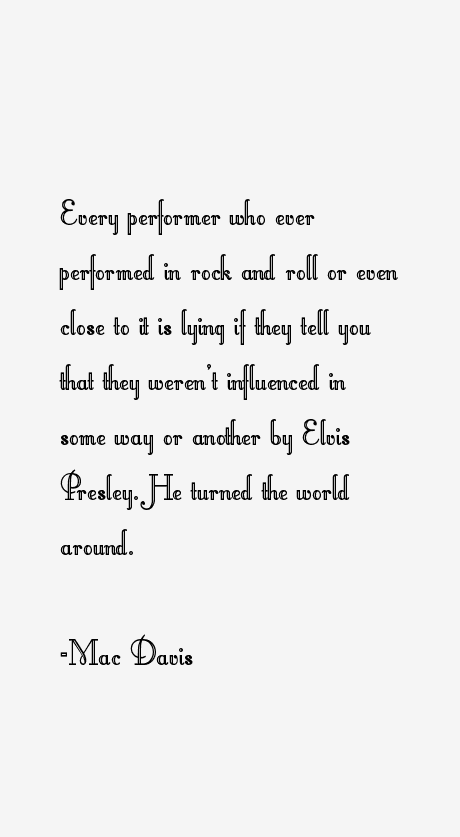 Every performer who ever
performed in rock and roll or even
close to it is lying if they tell you
that they weren't influenced in
some way or another by Elvis
Presley. He turned the world
around.
-Mac Davis